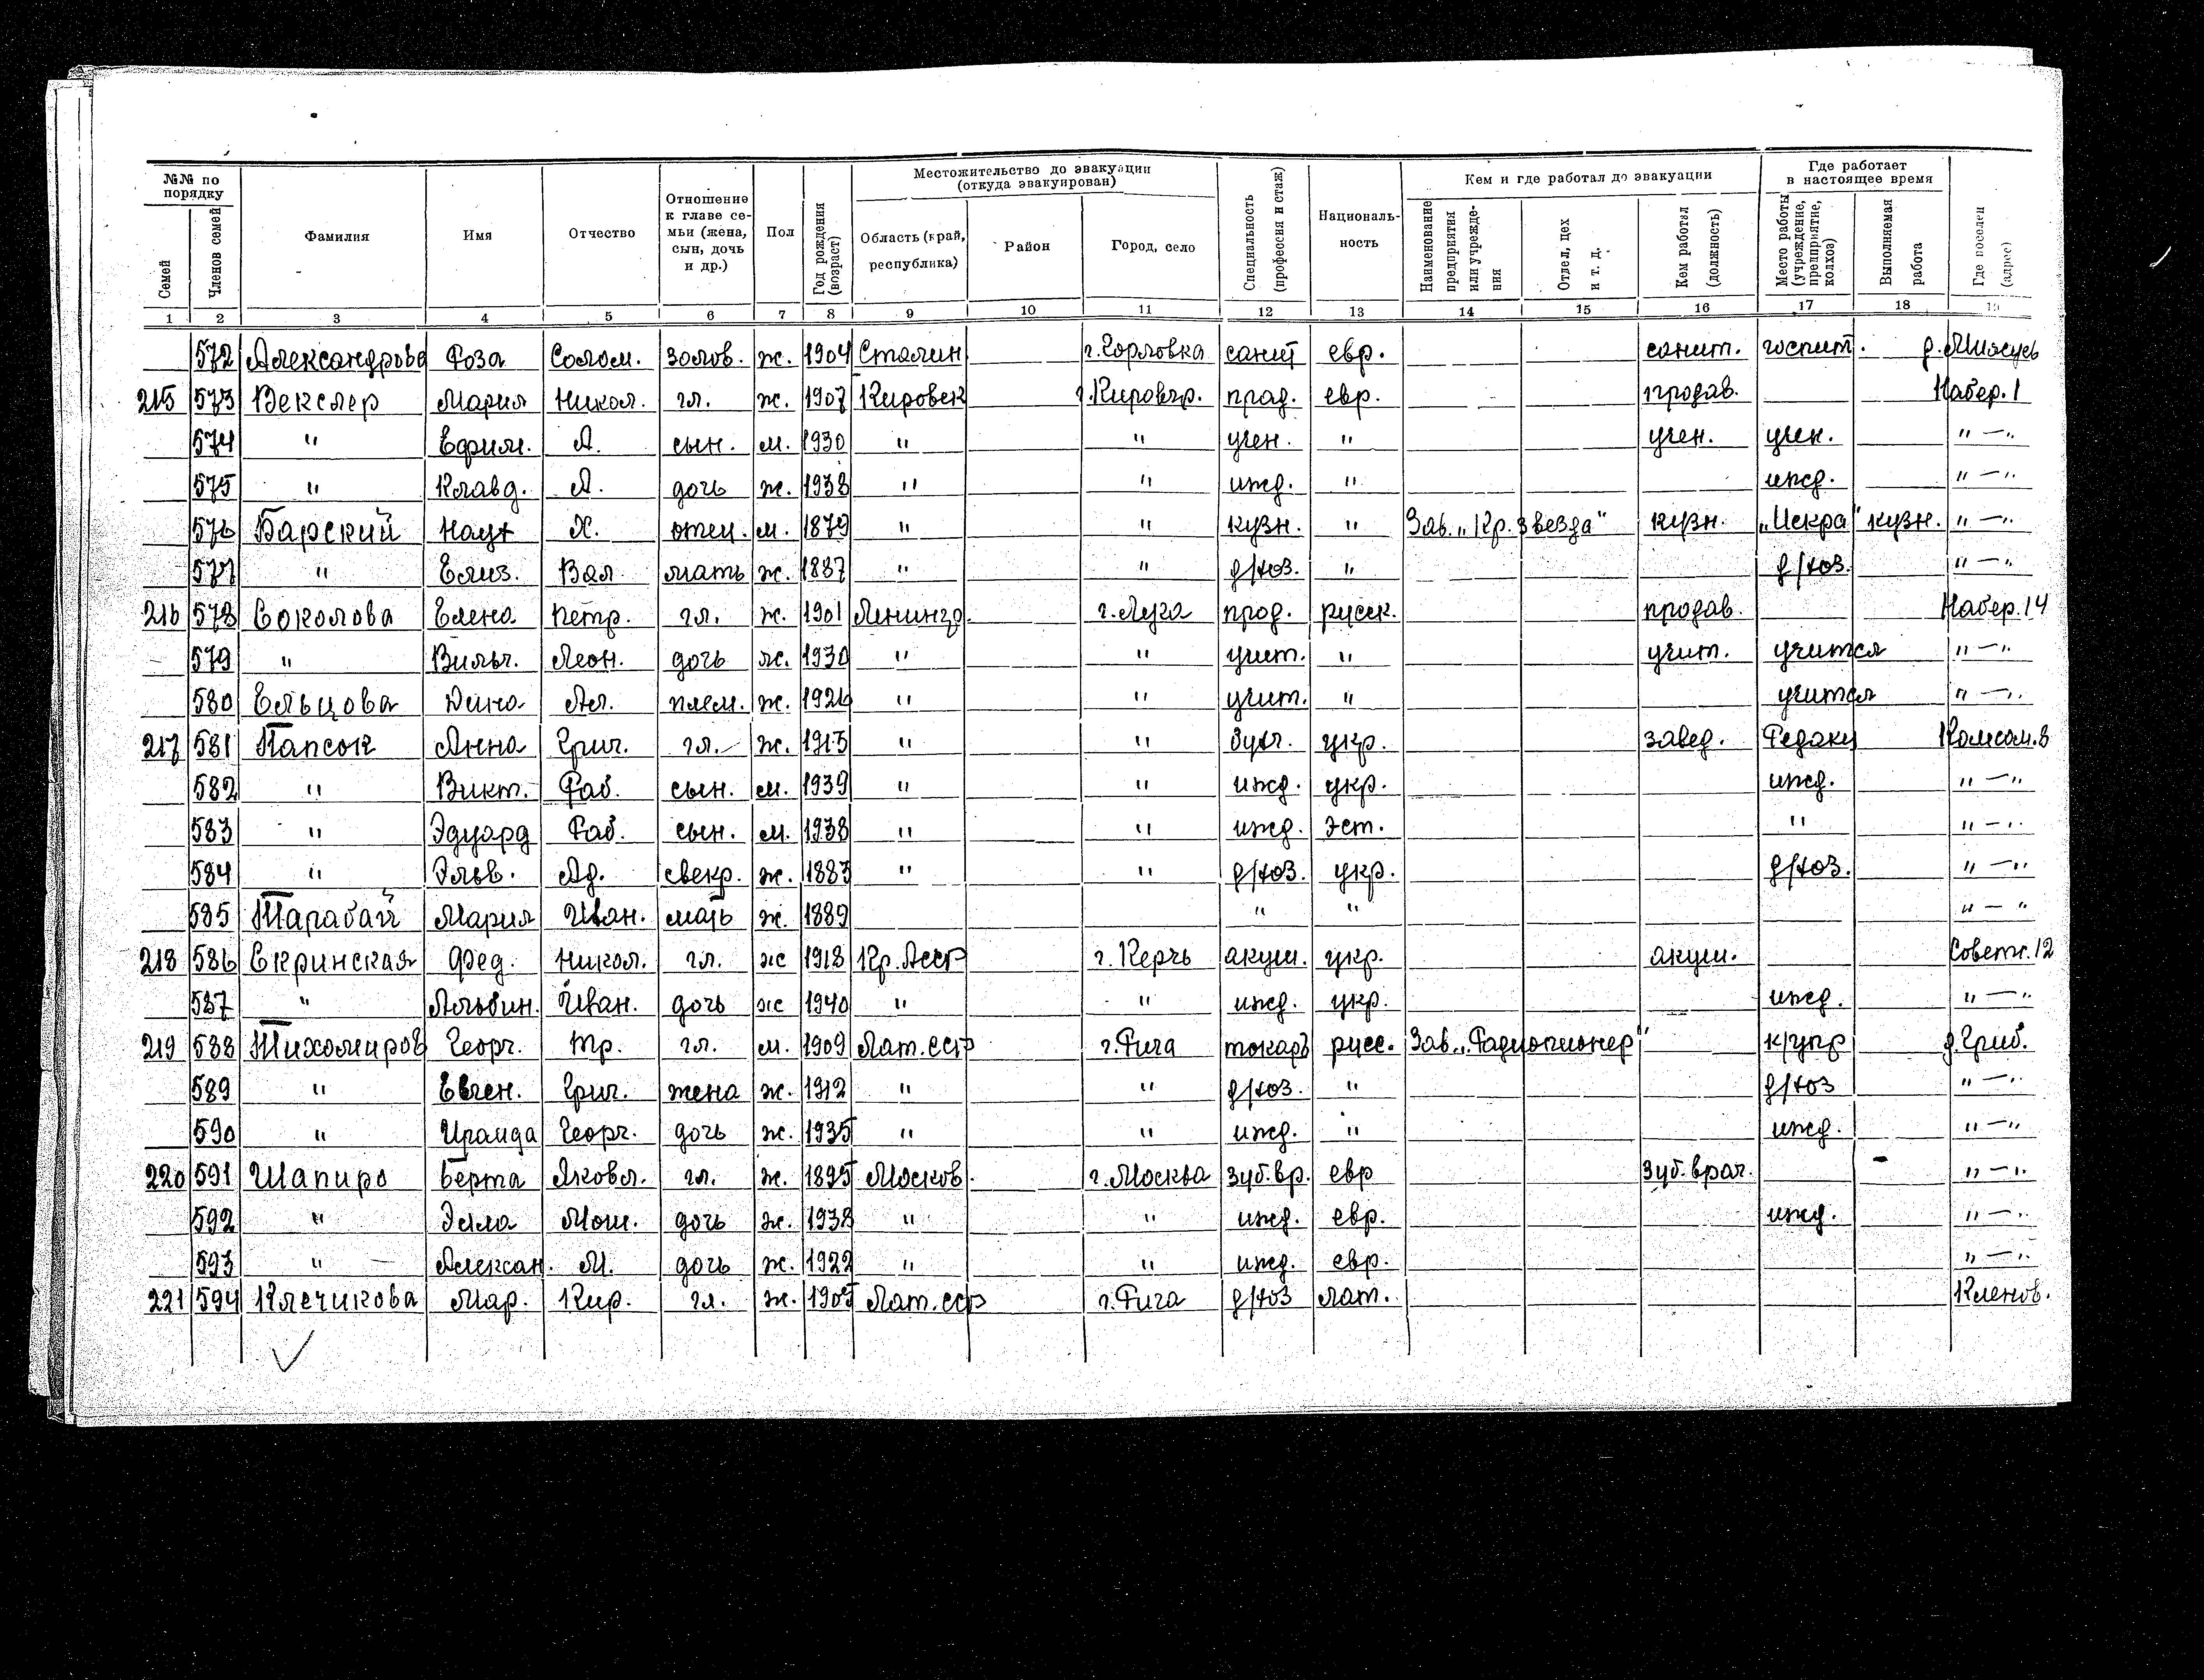 №№ по порядку
Семей
Членов семей
Фамилия
Имя
Отчество
Отношение к главе се-
мьи (жена, сын, дочь и др.)
Пол
Год рождения (возраст)
Местожительство до эвакуации (откуда эвакуирован)
Область (край, республика)
Район
Город, село
Специальность (профессия и стаж)
Националь-
ность
Кем и где работал до эвакуации
Наименование предприятия или учрежде-
ния
Отдел, цех и т. д.
Кем работал (должность)
Где работает в настоящее время
Место работы (учреждение, предприятие, колхоз)
Выполняемая работа
Где поселен (адрес)
1 2 3 4 5 6 7 8 9 10 11 12 13 14 15 16 17 18 19
572 Александрова Роза Солом. золов. ж. 1904 Сталин г. Горловка санит евр. санит. госпит.
215 573 Векслер Мария Никол. гл. ж. 1907 Кировск г. Кировгр. прод. евр. продав. Набер. 1
574 " Ефим. А. сын. м. 1930 " " учен. " учен. учен. " — "
575 " Клавд. А. дочь ж. 1938 " " ижд. " ижд. " — "
576 Барский Наух Х. отец. м. 1879 " " кузн. " Зав. „Кр. звезда" кузн. „Искра" кузн. " — "
577 " Елиз. Вал. мать ж. 1887 " " д/хоз. " д/хоз. " — "
216 578 Соколова Елена Петр. гл. ж. 1901 Ленингр. г. Луга прод. русск. продав. Набер. 14
579 " Леон. дочь ж. 1930 " " учит. " учит. учится " — "
580 Ельцова Дина Ал. плем. ж. 1926 " " учит. " учится " — "
217 581 Папсок Анна Григ. гл. ж. 1915 " " бухг. укр. завед. Редакц Комсом. 8
582 " Викт. Раб. сын. м. 1939 " " ижд. укр. ижд. " — "
583 " Эдуард Раб. сын. м. 1938 " " ижд. эст. " " — "
584 " Эльв. Ад. свекр. ж. 1883 " " д/хоз. укр. д/хоз. " — "
585 Тарабай Мария Иван. мать ж. 1889 " " " — "
218 586 Скринская Фед. Никол. гл. ж 1918 Кр. Асср г. Керчь акуш. укр. акуш. Советск. 12
587 " Альбин. Иван. дочь ж 1940 " " ижд. укр. ижд. " — "
219 588 Тихомиров Георг. Тр. гл. м. 1909 Лат. сср г. Рига токарь русс. Зав. „Радиопионер" к/упр д. Гриб.
589 " Евген. Григ. жена ж. 1912 " " д/хоз. " д/хоз " — "
590 " Ираида Георг. дочь ж. 1935 " " ижд. " ижд. " — "
220 591 Шапиро Берта Яковл. гл. ж. 1895 Москов. г. Москва зуб. вр. евр зуб. врач. " — "
592 " Элла Мош. дочь ж. 1938 " " ижд. евр. ижд. " — "
593 " Алексан. М. дочь ж. 1922 " " ижд. евр. " — "
221 594 Клечикова Мар. Кир. гл. ж. 1905 Лат. сср г. Рига д/хоз лат. Кленов.